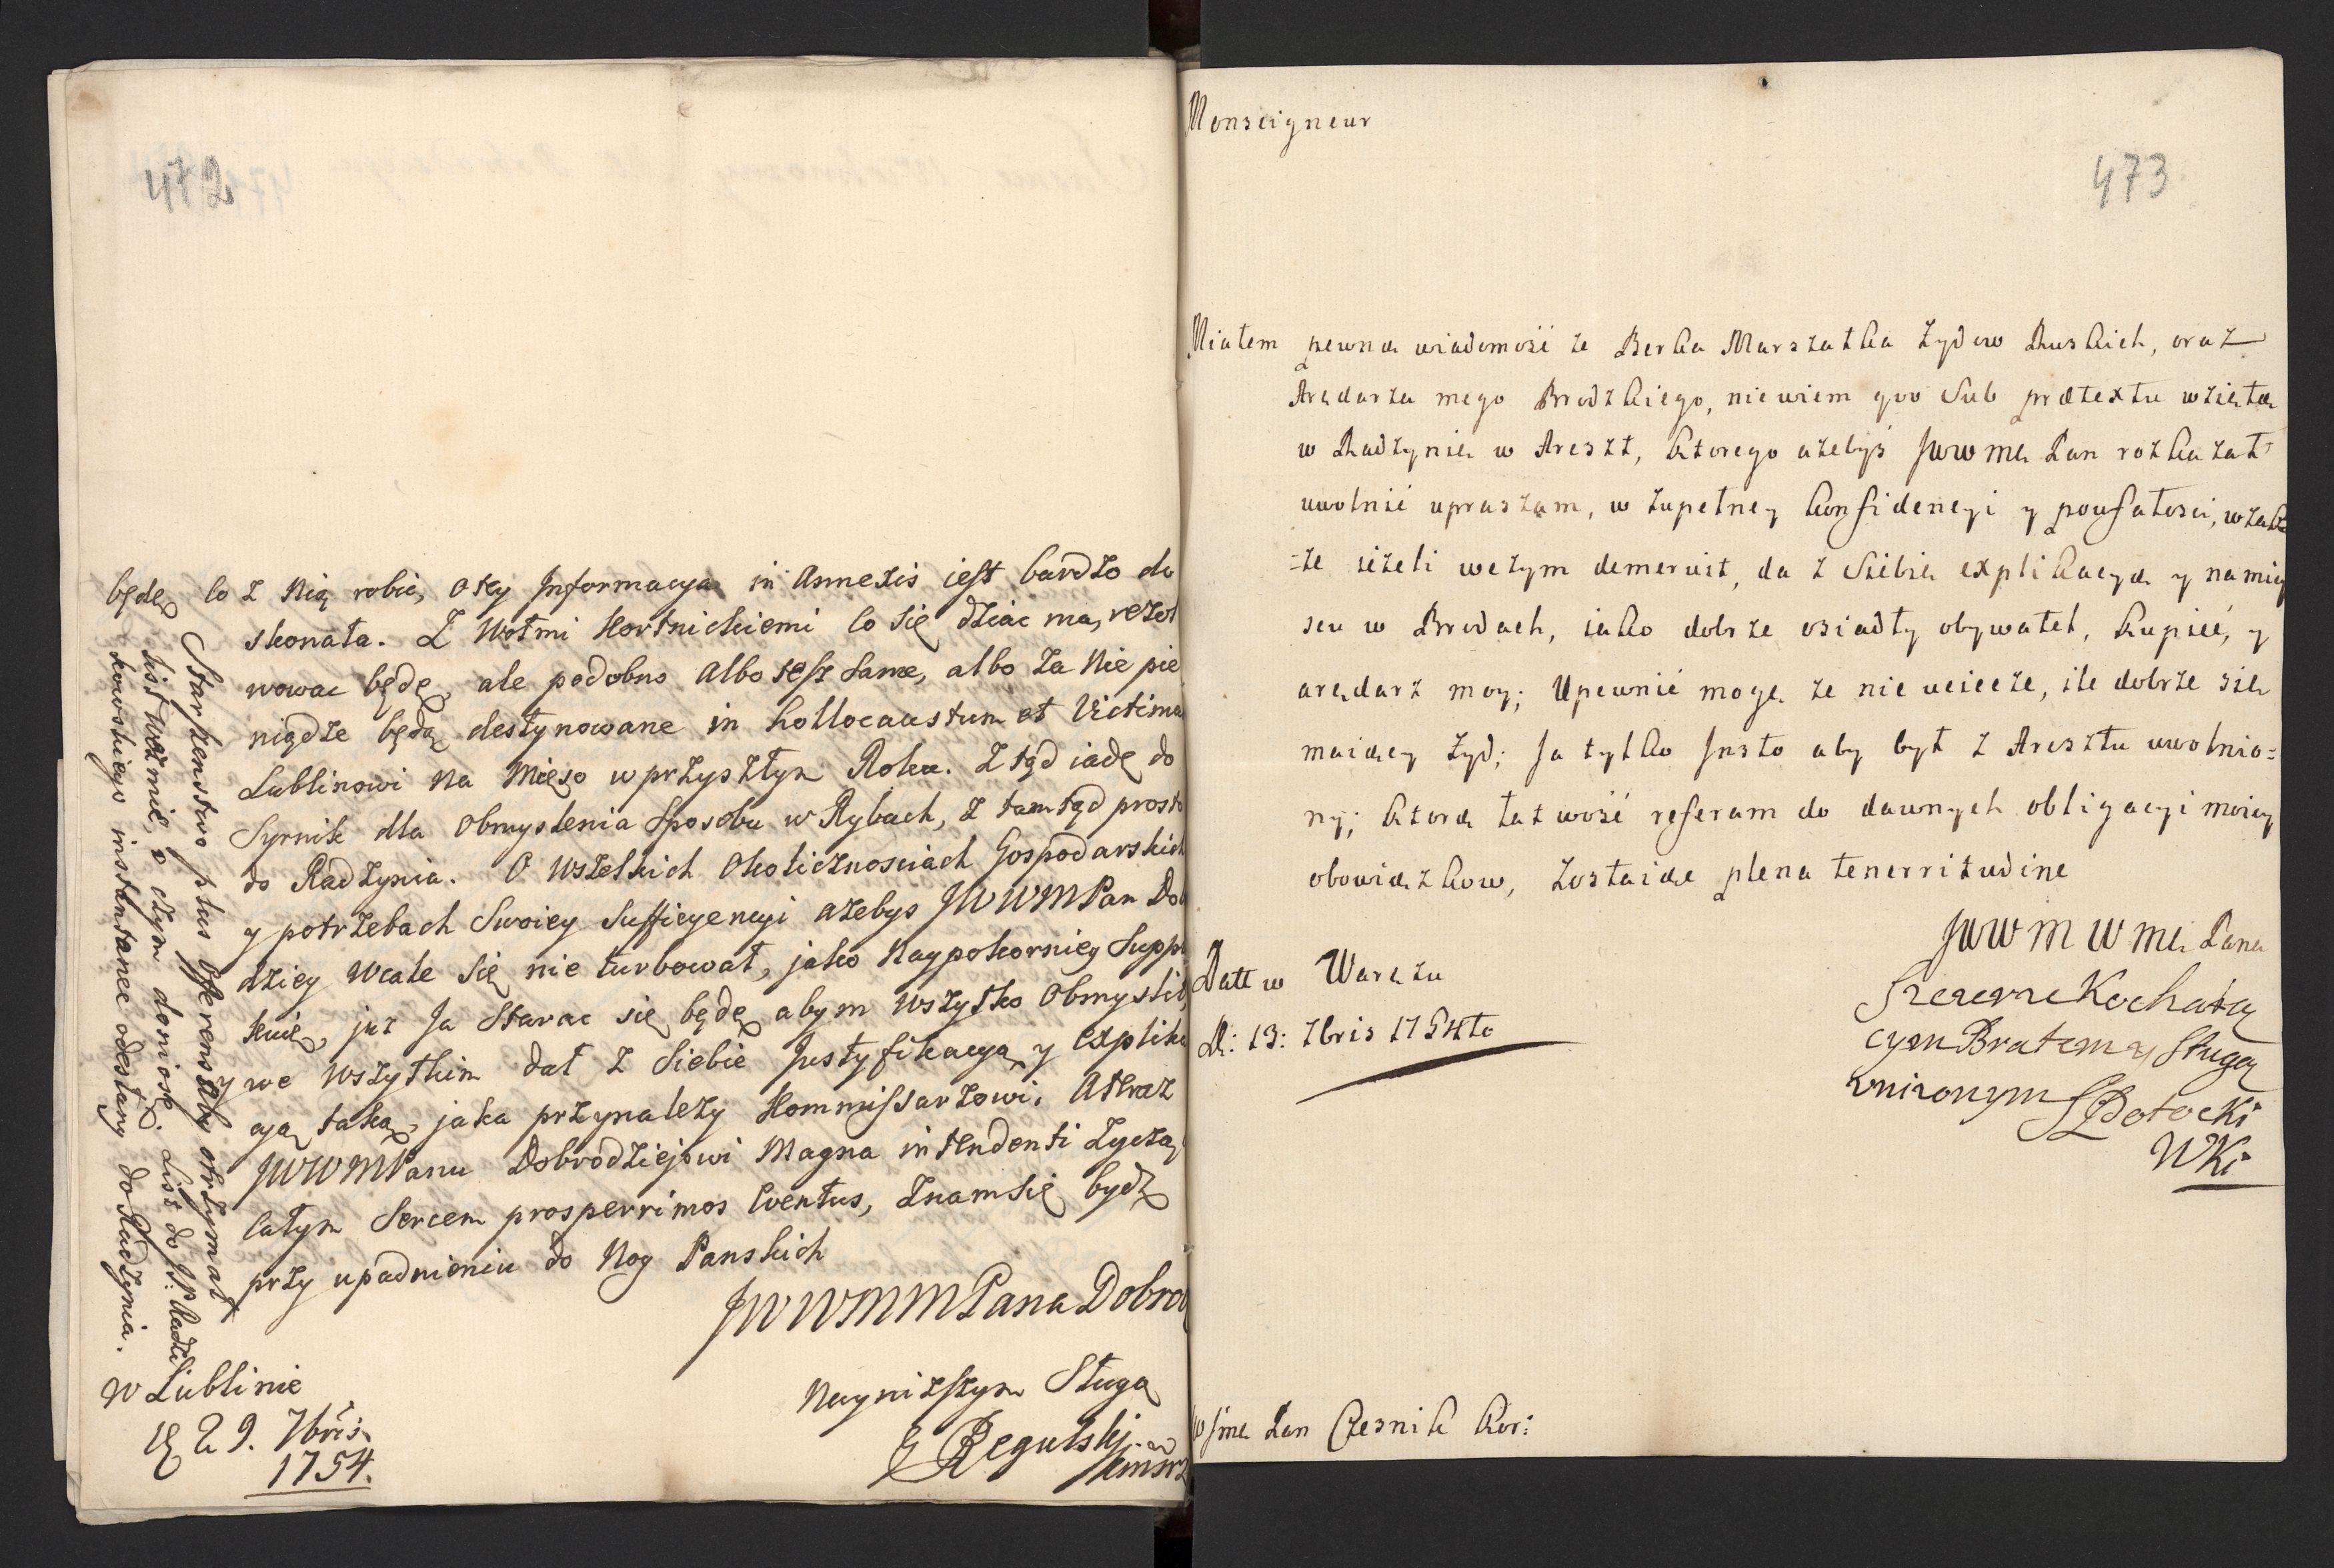 472
będę co z nią robic, o tey Informacya in Annexis iest bardzo do
skonała. Z Wołmi Hornickiemi co się dziac ma, rezol
wowac będę, ale podobno albo tesz same, albo za nie pie
niądze będą destynowane in hollocaustum et Victima
Lublinowi na Mięso w przyszłym Roku. Z tąd iadę do
Syrnik dla obmyslenia Sposobu w Rybach, z tamtąd prosto
do Radzynia. O wszelkich okolicznosciach Gospodarskich
y potrzebach Swoiey Sufficyencyi azebys JWWMPan Dob
dziey wcale się nie turbował, jako Naypokorniey Suppl
kuię, juz Ja starac się będę abym wszytko obmyslił,
y we wszytkim dał z Siebie Justyfikacyą y explika
cyą taką, jaka przynalezy Kommissarzowi. A teraz
JWWMPanu Dobrodziejowi Magna intendenti zyczą
całym Sercem prosperrimos Eventus, znam się bydz
przy upadnieniu do Nog Panskich
JWWMMPana Dobrod
Nayniższym Sługą
Regulski
w Lublinie
29. 7bris
1754.
Starszenstwo plus offerens aby otrzymał
list do JP. Radzi
kowskiego instantanee odesłany do Radzynia.
Monseigneur
473
Miałem pewną wiadomość że Berka Marszałka Żydow Ruskich, oraz
Arędarza mego Brodzkiego, niewiem quo sub prætextu wzięto
w Radzynie w Areszt, ktorego ażebyś JWWMć Pan rozkazał
uwolnić upraszam, w zupełney konfidencyi y poufałosci, wzak
=że ieżeli wczym demeruit, da z siebie explikacyą y namiey
scu w Brodach, iako dobrze osiadły obywatel, kupiec, y
arędarz moy; Upewnić mogę że nie uciecze, ile dobrze się
maiący Żyd; Ja tylko Insto aby był z Aresztu uwolnio=
ny; ktorą łatwość referam do dawnych obligacyi moiey
obowiązkow, zostaiąc plena tenerritudine
JWWMWMć Pana
Szczerze Kochaią
cym Bratem y Sługą
vniżonym
Potocki
WKi
Datt w Warężu
D: 13: 7bris 1754to
JWJmć Pan Czesnik Kor: